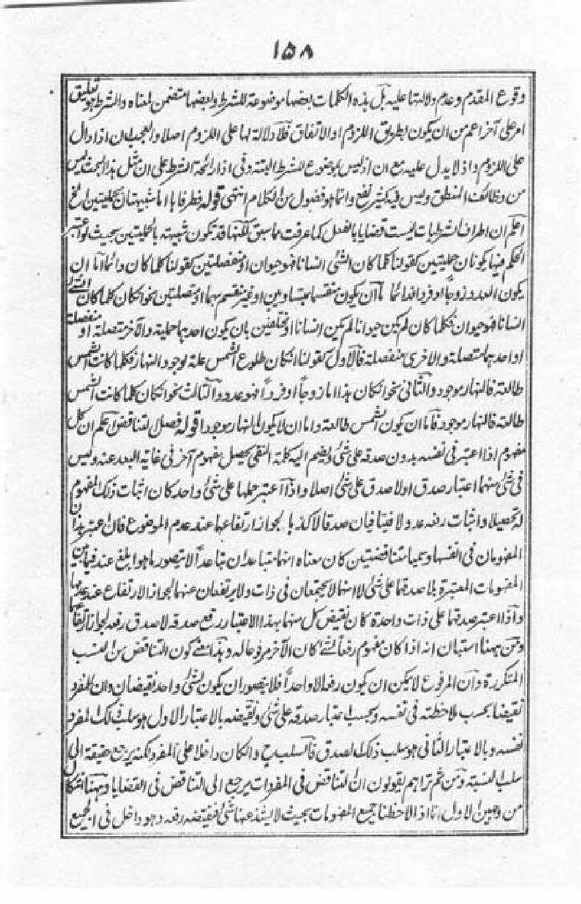 ١٥٨
وقوع المقدم وعدم دلالتها عليه بل هذه الكلمات بعضها موضوعة للشرط وبعضها متضمن لمعناه والشرط هو تعليق
امر على آخر اعم من ان يكون بطريق اللزوم او الاتفاق فلا دلالة لها على اللزوم اصلا والعجب ان اذا دال
على اللزوم واذ لا يدل عليه مع ان اذ ليس بموضوع للشرط البتة وفى اذا رائحة الشرط على ان مثل هذا البحث ليس
من وظائف المنطق وليس فيه كثير نفع وانما هو فضول من الكلام انتهى قوله فطرفاها اما شبيهتان بحمليتين الخ
اعلم ان اطراف الشرطيات ليست قضايا بالفعل كما عرفت مما سبق لكنها قد تكون شبيهة بالحمليتين بحيث لو اعتبر
الحكم فيها يكونان حمليتين كقولنا كلما كان الشئ انسانا فهو حيوان او منفصلتين كقولنا كلما كان دائما اما ان
يكون العدد زوجا او فردا فدائما اما ان يكون منقسما بمتساويين او غير منقسم بهما او متصلتين نحو ان كان كلما كان الشئ
انسانا فهو حيوان فكلما كان لم يكن حيوانا لم يكن انسانا او مختلفتين بان يكون احدهما حملية والآخر متصلة او منفصلة
او احدهما متصلة والاخرى منفصلة فالاول كقولنا ان كان طلوع الشمس علة لوجود النهار فكلما كانت الشمس
طالعة فالنهار موجود والثانى نحو ان كان هذا اما زوجا او فردا فهو عدد والثالث نحو ان كان كلما كانت الشمس
طالعة فالنهار موجود فاما ان يكون الشمس طالعة واما ان لا يكون النهار موجودا قوله فصل التناقض اعلم ان كل
مفهوم اذا اعتبر فى نفسه بدون صدقه على شئ وضم اليه كلمة النفى يحصل مفهوم آخر فى غاية البعد عنه وليس
فى شئ منهما اعتبار صدق او لا صدق على شئ اصلا واذا اعتبر حملها على شئ واحد كان اثبات ذلك المفهوم
له تحصيلا واثبات رفعه عدولا فيتنافيان صدقا لا كذبا لجواز ارتفاعها عند عدم الموضوع فان اعتبر هذان
المفهومان فى انفسهما وسميا متناقضتين كان معناه انهما متباعدان تباعدا لا يتصور ما هو ابلغ عنه فيما بين
المفهومات المعتبرة بلا صدقها على شئ لا انهما لا يجتمعان فى ذات ولا يرتفعان عنها لجواز الارتفاع عند عدمها
واذا اعتبر صدقها على ذات واحدة كان نقيض كل منهما بهذا الاعتبار رفع صدقه لا صدق رفعه لجواز ارتفاعهما
ومن ههنا استبان انه اذا كان مفهوم رفعا لشئ كان الآخر مرفوعا له وبهذا معنى كون التناقض من النسب
المتكررة وان المرفوع لا يمكن ان يكون رفعه الا واحدا فلا يتصور ان يكون لشئ واحد نقيضان وان للمفرد
نقيضا بحسب ملاحظته فى نفسه وبحسب اعتبار صدقه على شئ ونقيضه بالاعتبار الاول هو سلب ذلك المفرد
نفسه وبالاعتبار الثانى هو سلب ذلك الصدق فالسلب ح وان كان داخلا على المفرد لكنه يرجع حقيقة الى
سلب النسبة ومن ثم تراهم يقولون ان التناقض فى المفردات يرجع الى التناقض فى القضايا وههنا اشكال
من وجهين الاول انا اذا لاحظنا جميع المفهومات بحيث لا يشذ عنها شئ فنقيضه رفعه وهو داخل فى الجميع